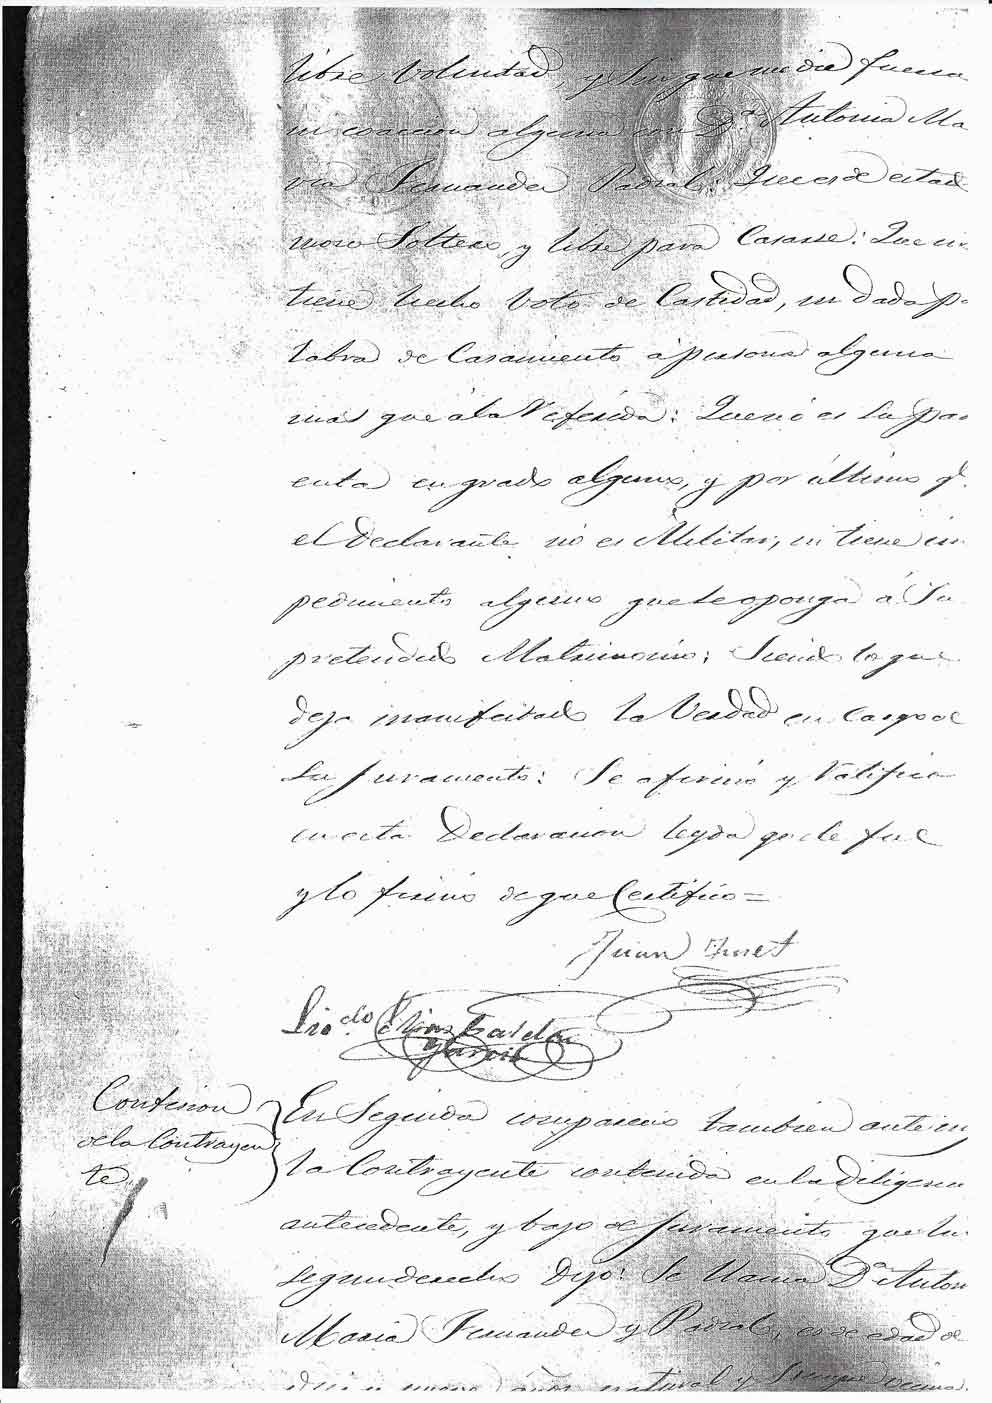 libre voluntad, y sin que medie fuersa
ni coaccion alguna con D.ª Antonia Ma
ria Fernandez Padral: Que es de estad
moso Soltero, y libre para Casarse: Que no
tiene hecho Voto de Castidad, ni dada pa
labra de Casamiento á persona alguna
mas que á la Referida: Que nó es su par
enta en grado alguno, y por último q.e
el Declarante nó es Militar, ni tiene im
pedimento alguno que le oponga á Su
pretendido Matrimonio; Siendo lo que
deja manifestado la Verdad en cargo de
Su juramento: Se afirmó y Ratificó
en esta Declaracion leyda que le fue
y lo firmó de que Certifico =
Juan
Lic.do Elias
y Garcia
Confesion
de la Contrayen
te.
En Seguida comparecio tambien ante mi
la Contrayente contenida en la Diligencia
antecedente, y bajo de juramento que hi
segun derecho Dijo: Se llama D.ª Anton
Maria Fernandez y Padral, es de edad de
años natural y Siempre vecina